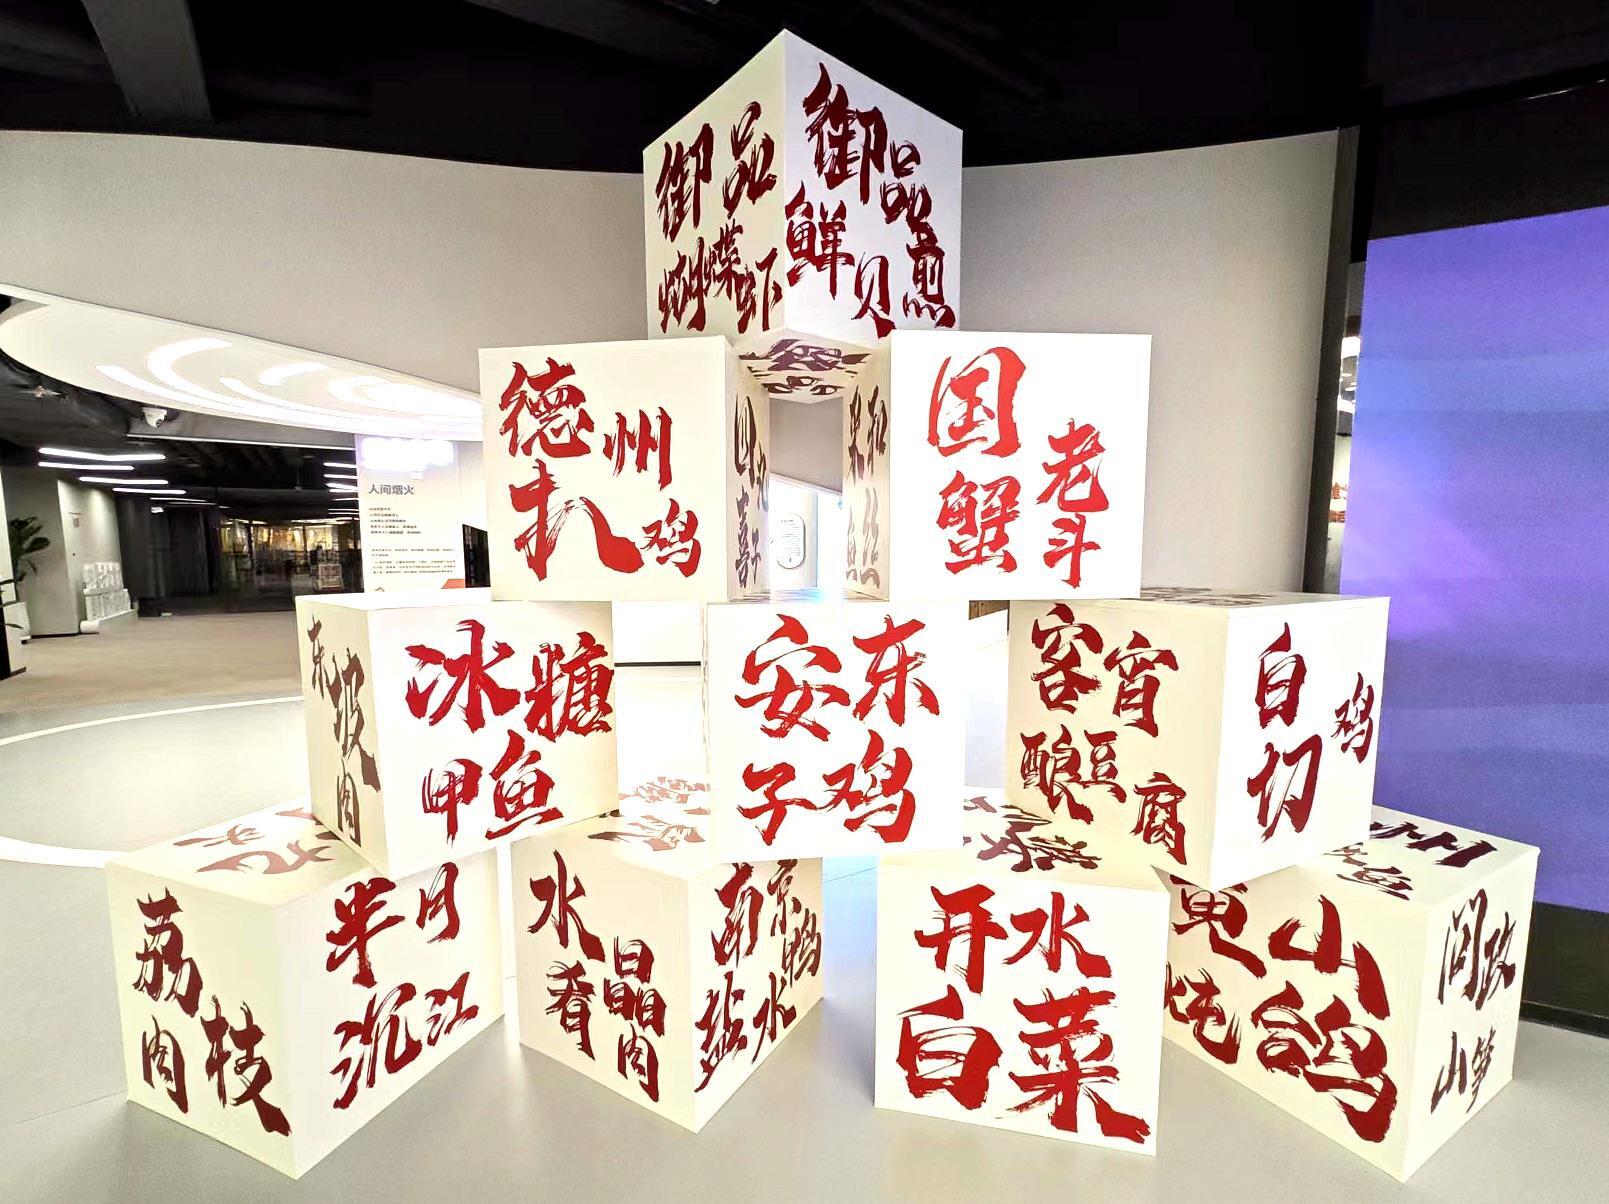 御品
蝴蝶虾
御品
鲜贝煎
德州
扒鸡
国
蟹
老
斗
人间烟火
东
坡
肉
冰糖
甲鱼
安东
子鸡
客宵
酿豆
腐
白
切
鸡
荔
枝
肉
半月
沉江
水
晶
肴
肉
南京
盐水鸭
开水
白菜
山
炖鸽
问政
山笋